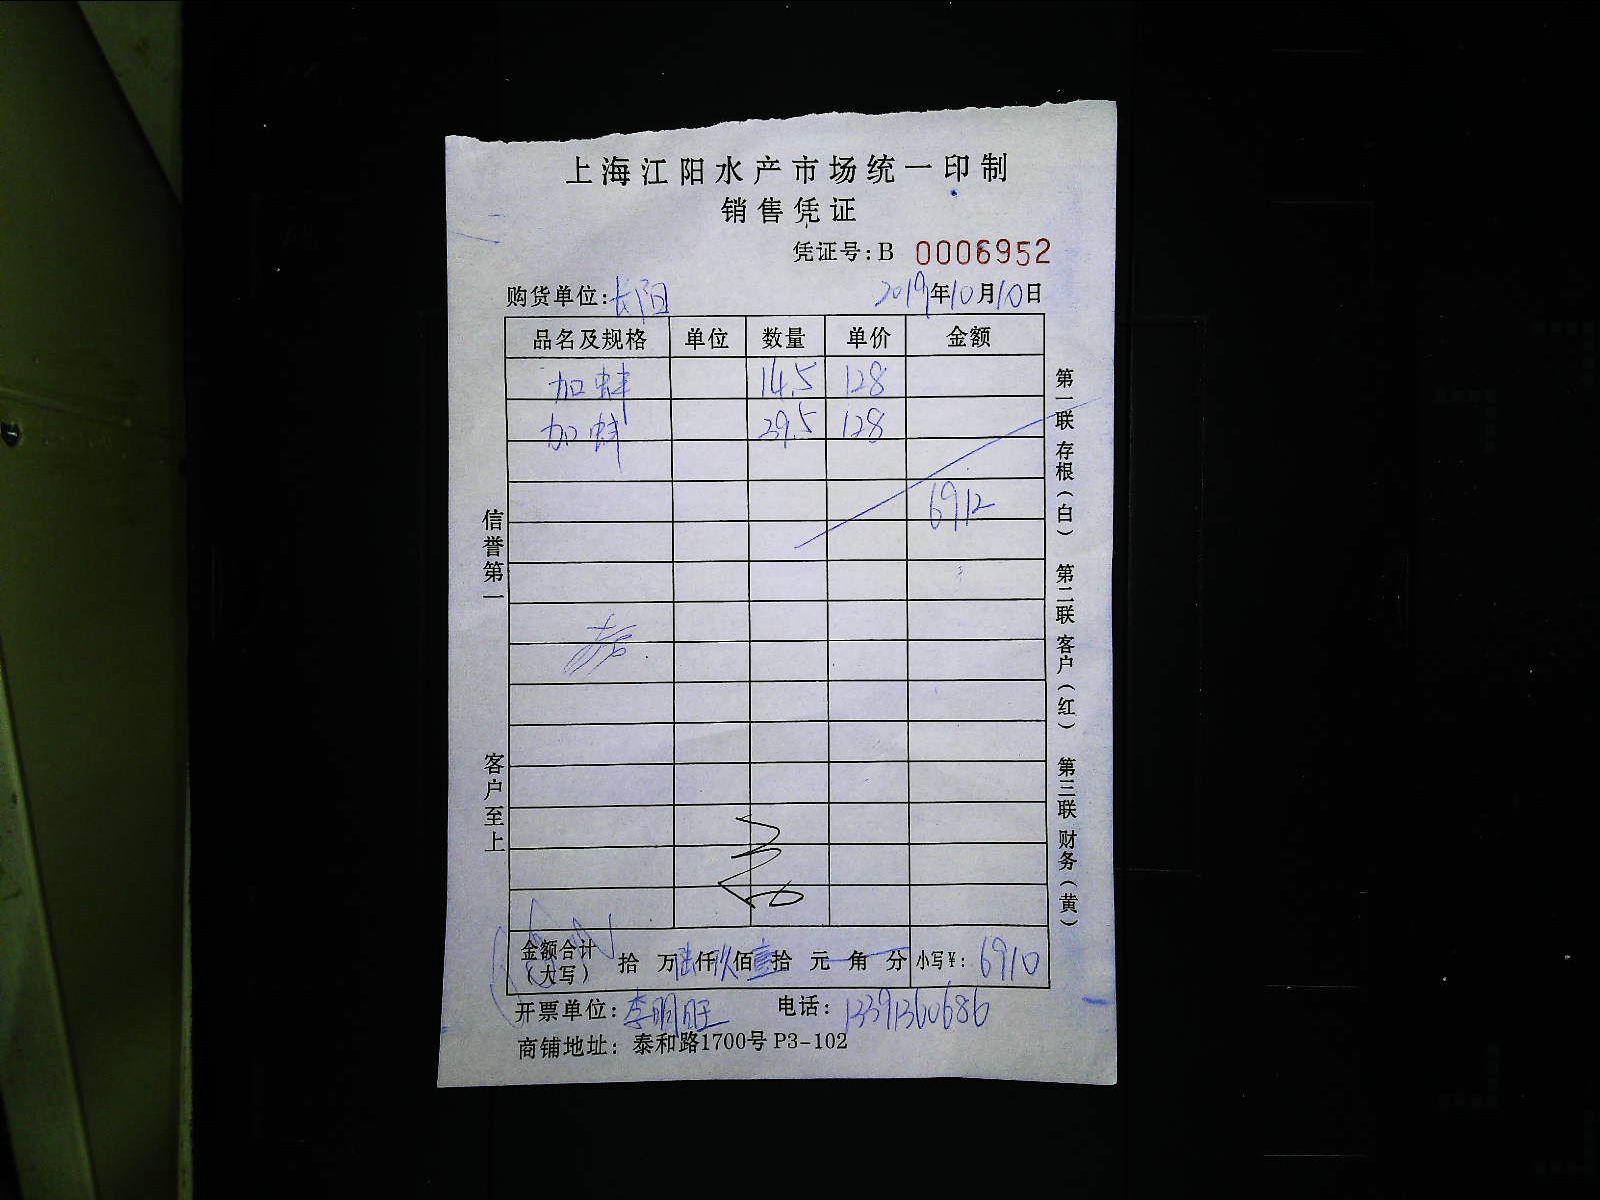 上海江阳水产市场统一印制
销售凭证
凭证号:B 0006952
购货单位:长阳 2019年10月10日
品名及规格 单位 数量 单价 金额
加蚌 14.5 128
加蚌 39.5 128
6912
信誉第一
客户至上
第一联 存根(白) 第二联 客户(红) 第三联 财务(黄)
金额合计(大写) 拾 万陆仟玖佰壹拾 元 角 分 小写¥: 6910
开票单位:李明旺 电话:13391360686
商铺地址: 泰和路1700号 P3-102